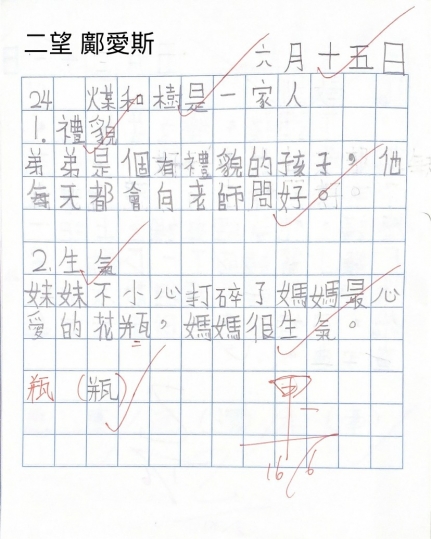 二望 鄺愛斯
六月十五日
24 煤和樹是一家人
1. 禮貌
弟弟是個有禮貌的孩子，他
每天都會向老師問好。
2. 生氣
妹妹不小心打碎了媽媽最心
愛的花瓶，媽媽很生氣。
瓶 (瓶)
甲-
16/6